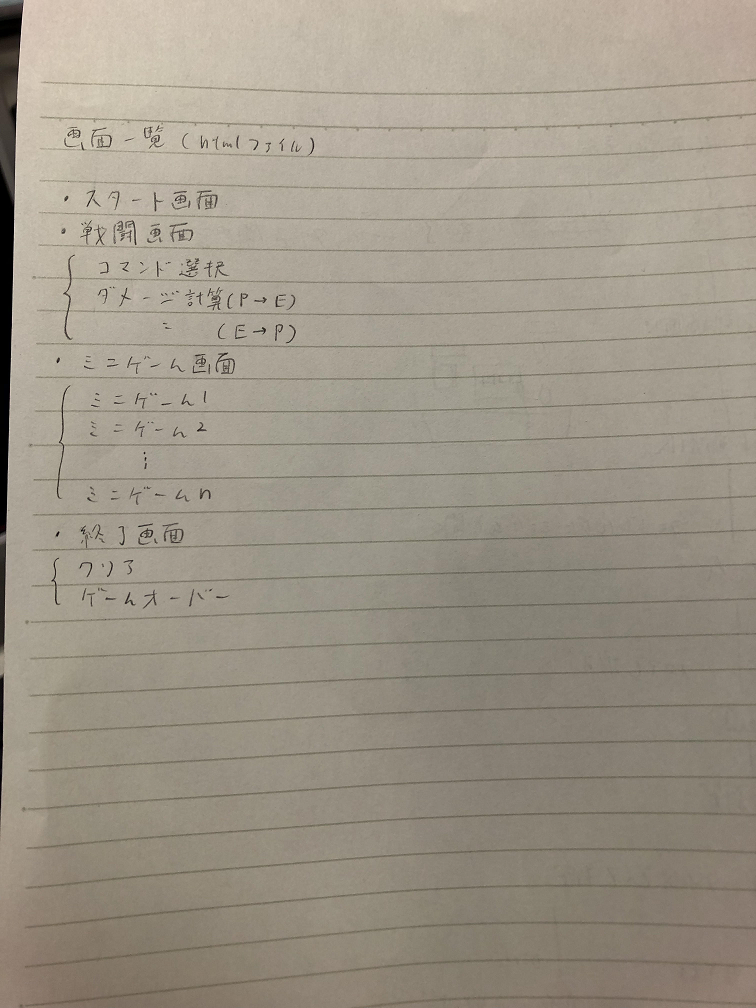 画面一覧(htmlファイル)
・スタート画面
・戦闘画面
コマンド選択
ダメージ計算(P→E)
〃 (E→P)
・ミニゲーム画面
ミニゲーム1
ミニゲーム2
⋮
ミニゲームn
・終了画面
クリア
ゲームオーバー